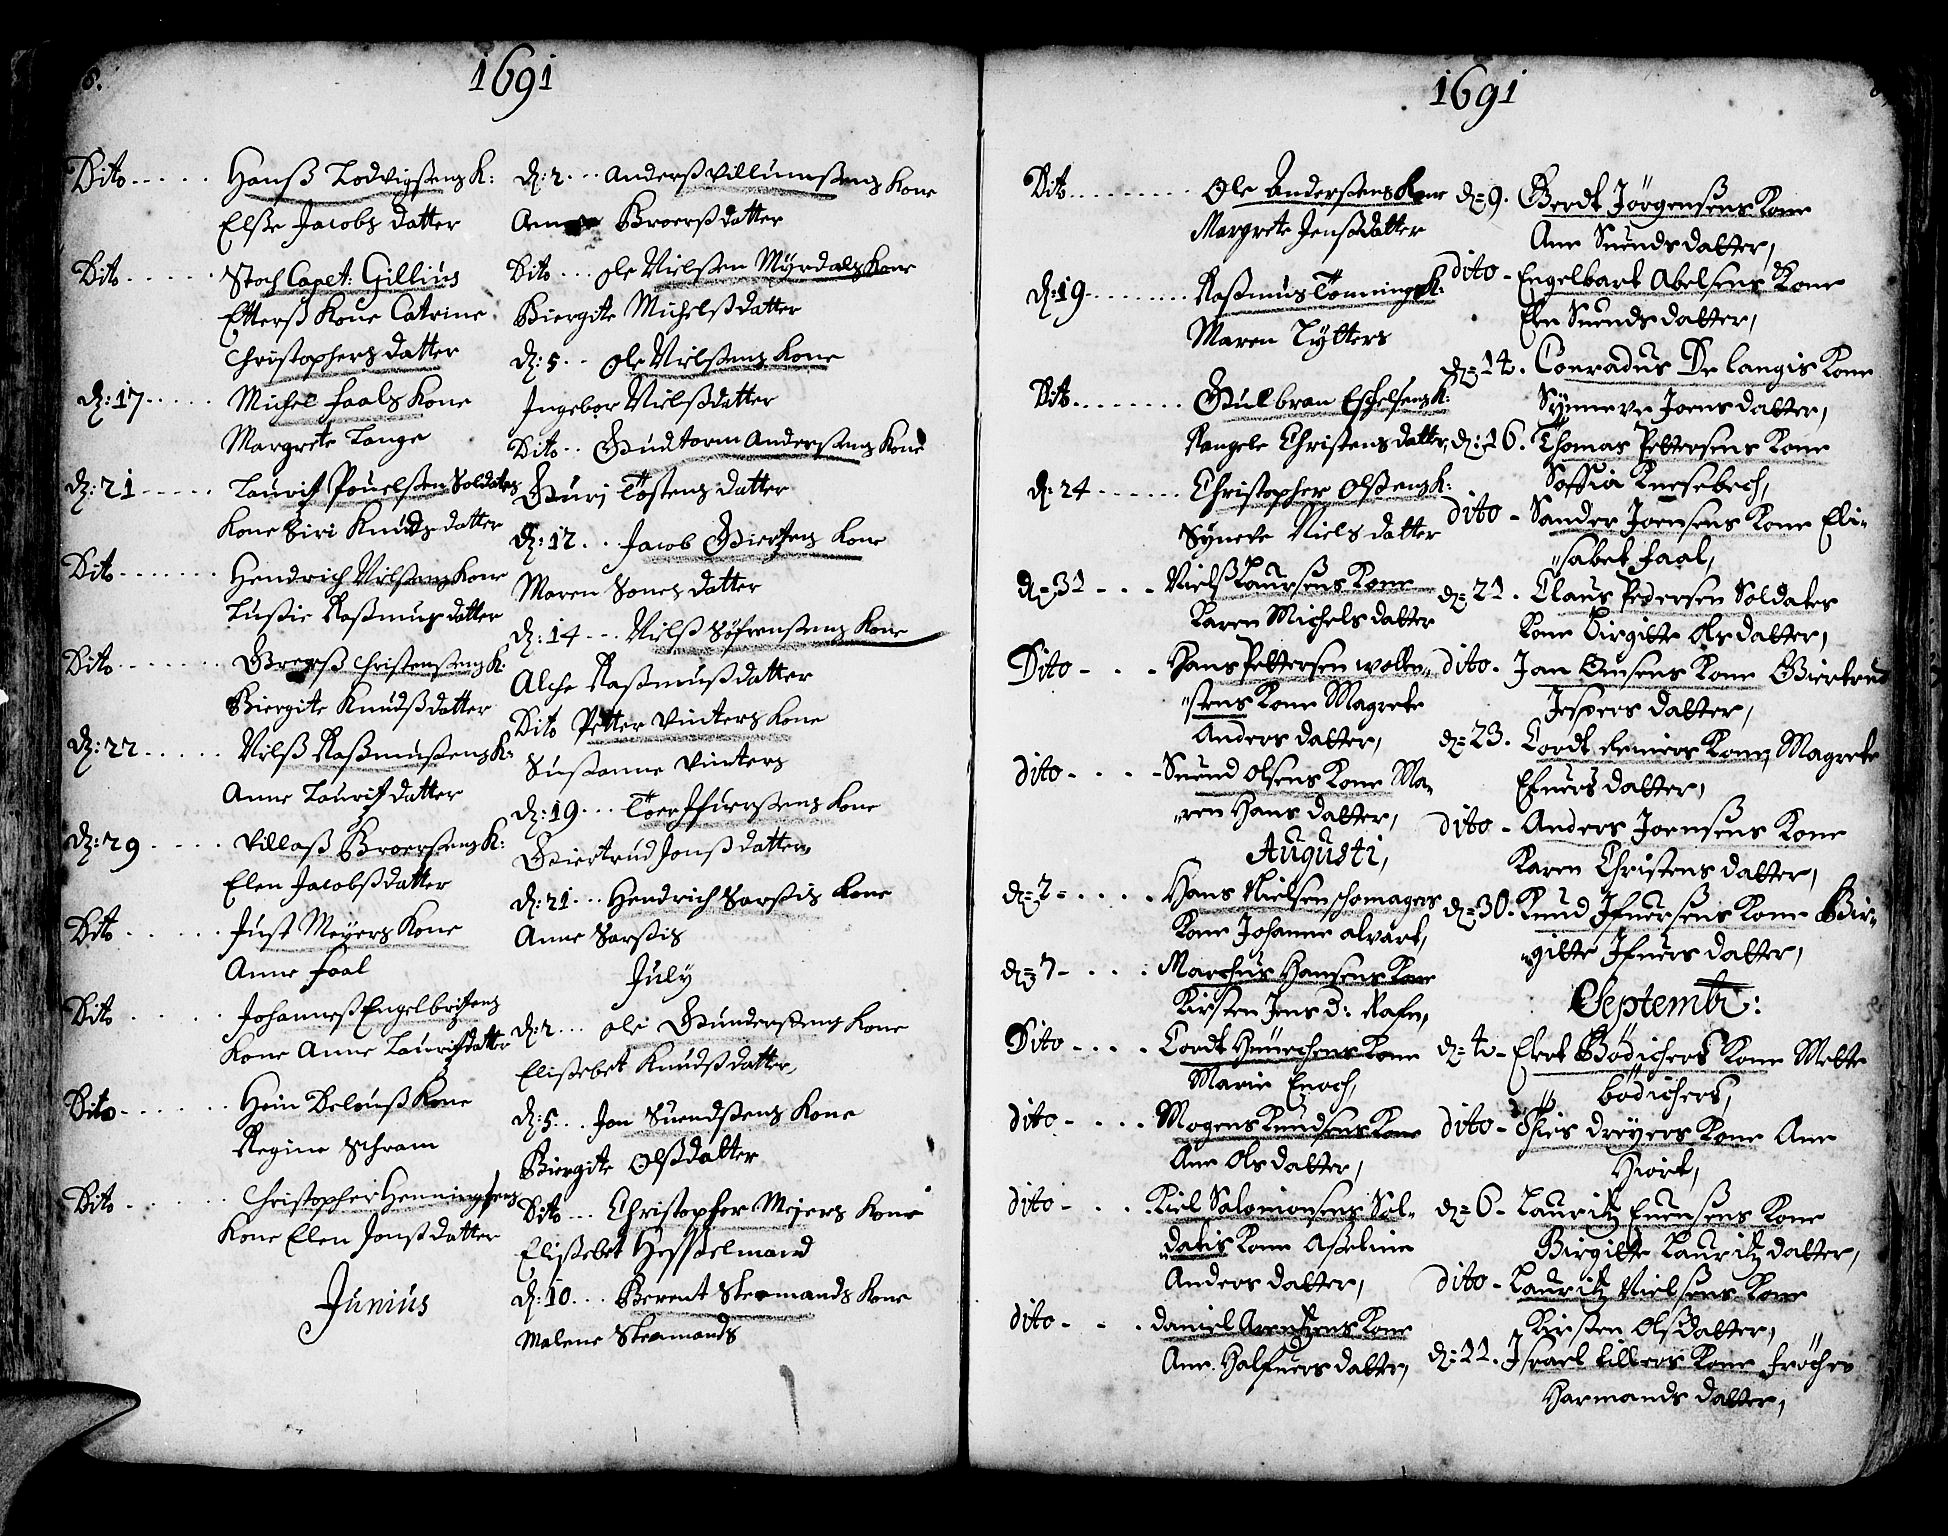 8.
1691
Dito . . . . . Hanß Lodvigsens K:
Elße Jacobs datter
Dito . . . . . Stoch Capet. Gillius
Etterß Kone Catrine
Christophers datter
D: 17 . . . . . Michel Faals Kone
Margrete Lange
D: 21 . . . . . Laurits Pouelßen Soldates
Kone Siri Knuds datter
Dito . . . . . Hendrich Nilßens Kone
Lußie Raßmus datter
Dito . . . . . Gregerß Christenßens K:
Biergite Knudß datter
D: 22 . . . . . Nilß Raßmußens K:
Anne Laurits datter
D: 29 . . . . . Villaß Broerßens K:
Elen Jacobß datter
Dito . . . . . Just Meÿers Kone
Anne Faal
Dito . . . . . Johanneß Engelbretsens
Kone Anne Laurits datter
Dito . . . . . Hein Delouß Kone
Regine Schram
Dito . . . . . Christopher Henningsens
Kone Elen Jonß datter
Junius
D: 2 . . . Anderß Villumßens Kone
Anne Broerß datter
Dito . . . Ole Nielßen Mÿrdals Kone
Biergite Michelß datter
D: 5 . . Ole Nielßens Kone
Ingebor Nielß datter
Dito . . Gudtorm Anderßens Kone
Guri Tostens datter
D: 12 . . . Jacob Giertsens Kone
Maren Sones datter
D: 14 . . . Nielß Söfrenßens Kone
Alche Raßmuß datter
Dito Petter Vinters Kone
Sußanne Vinters
D: 19 . . . Toer Ifuerßens Kone
Giertrud Jonß datter
D: 21 . . . Hendrich Sarßis Kone
Anne Sarßis
July
D: 2 . . . Ole Gunderßens Kone
Elißebet Knudß datter
D: 5 . . . Jon Suendßens Kone
Biergite Olß datter
Dito . . . Christopfer Meyers Kone
Elißebet Heßelmand
D: 10 . . . Berent Stramands Kone
Malene Stramands
1691
Dito . . . . . Ole Anderßens Kone
Margrete Jensdatter
D: 19 . . . . . Raßmus Tonnings K:
Maren Tytters
Dito . . . . . Gulbran Eskelsens K:
Rangele Christens datter,
D: 24 . . . . . Christopher Olßens K:
Syneve Niels datter
D= 31 - . . Nielß Laursens Kone
Karen Michels datter
Dito - . . Hans Pettersen wollen-
"stens Kone Magrete
Anders datter,
dito - . . Suend Olsens Kone Ma-
"ren Hans datter,
Augusti,
D= 2 = . . . Hans Nielsen schomagers
Kone Johanne Alvart,
D= 7 - . . . Marchus Hansens Kone
Kirsten Jens d: Rafn,
Dito - . . . Cordt Hinrichens Kone
Marie Enoch,
dito - . . . Mogens Knudsens Kone
Ane Ols datter,
dito - . . . Kiel Salomonsens Sol-
"datis Kone Aßeline
Anders datter,
dito - . . . Daniel Arentzens Kone
Ane Halfuers datter,
D= 9. Gerdt Jörgensens Kone
Ane Suends datter,
dito - Engelbart Abelsens Kone
Elen Suends datter,
D= 14. Conradus De Langis Kone
Synneve Joens datter,
D: 16. Thomas Pettersens Kone
Soffia Knesebech,
dito - Sander Joensens Kone Eli-
"sabet Faal,
D= 21. Claus Pedersen Soldates
Kone Birgitte Ols datter,
dito - Jan Onsens Kone Giertrud
Jespers datter,
D= 23. Cordt Reniers Kone Magrete
Efuers datter,
dito - Anders Joensens Kone
Karen Christens datter,
D= 30. Knud Ifuersens Kone Bir-
"gitte Ifuers datter,
Septembr:
D= 4 - Elert Bödichers Kone Mette
Bödichers,
dito - Thies Dreÿers Kone Ane
Hiort,
D= 6 - Lauritz Enensens Kone
Birgitte Lauritz datter,
dito - Lauritz Nielsens Kone
Kirsten Olsdatter,
D= 11. Israel Tillers Kone Fröchen
Harmands datter,